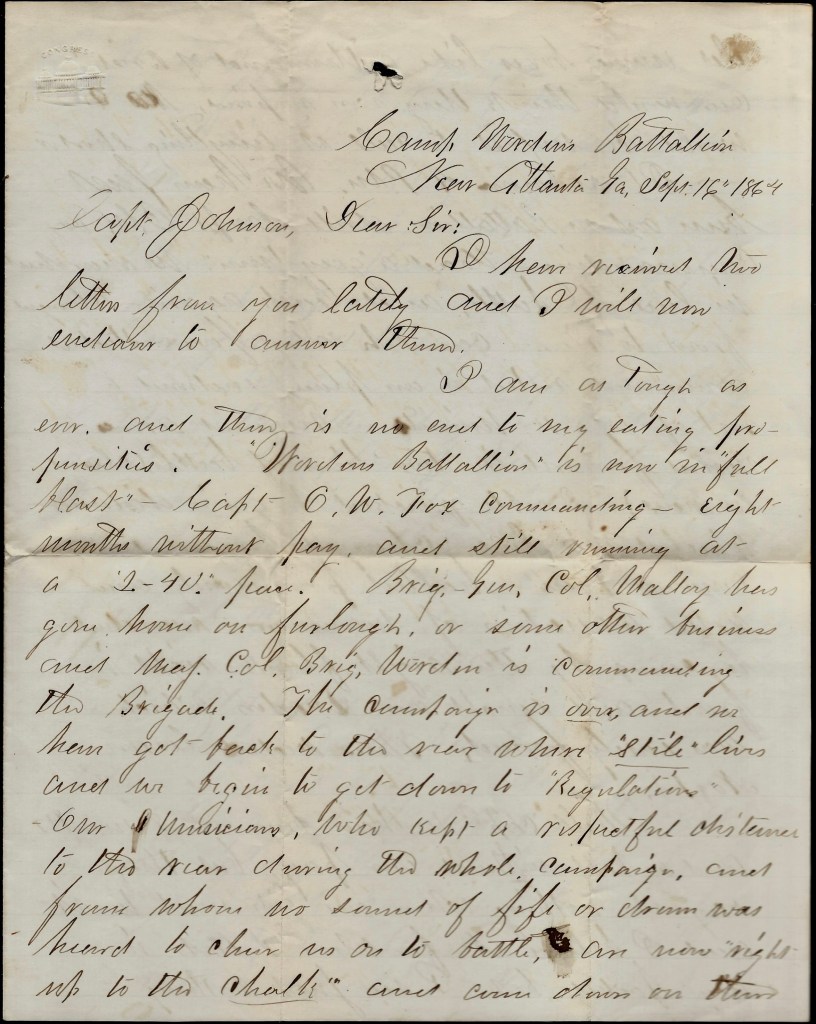 CONGRESS
Camp Wordens Battallion
Near Atlanta Ga, Sept. 16" 1864
Capt. Johnson, Dear Sir:
I have received two
letters from you lately and I will now
endeavor to answer them.
I am as Tough as
ever. and there is no end to my eating pro-
pensities. "Wordens Battallion" is now in "full
blast" - Capt O. W. Fox Commanding - Eight
months without pay, and still running at
a "2-40" pace. Brig.-Gen, Col, Malloy has
gone home on furlough, or some other business
and Maj. Col. Brig, Worden is commanding
the Brigade. The campaign is over, and we
have got back to the rear where "stile" lives
and we begin to get down to "Regulations"
Our Musicians, who kept a respectful distance
to the rear during the whole campaign, and
from whom no sound of fife or drum was
heard to cheer us on to battle, are now "right
up to the chalk" and come down on them